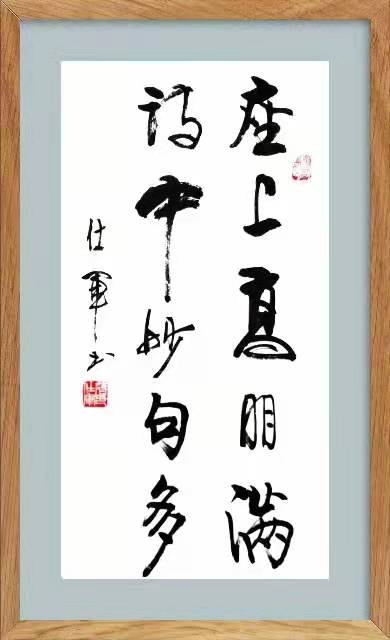 座上高朋满
诗中妙句多
仕军书